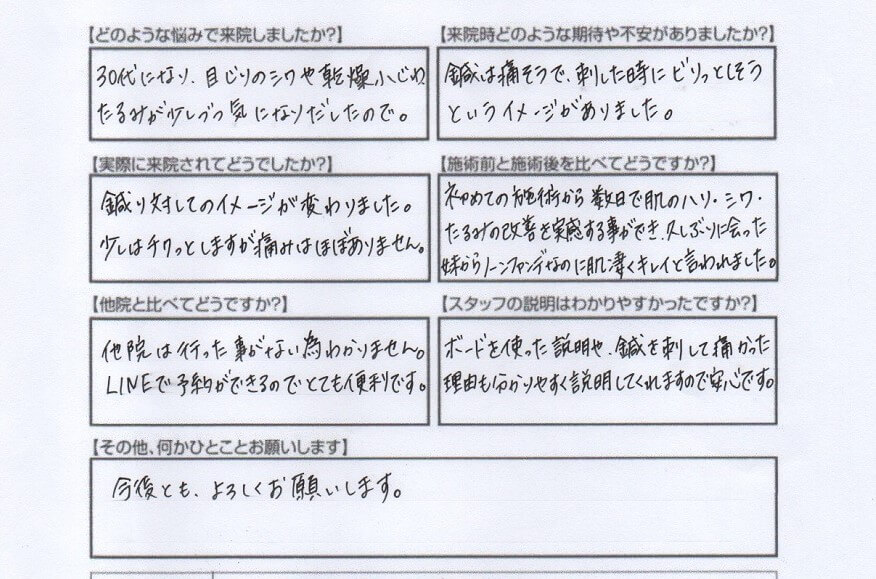 【どのような悩みで来院しましたか?】
30代になり、目じりのシワや乾燥小じわ
たるみが少しづつ気になりだしたので。
【来院時どのような期待や不安がありましたか?】
鍼は痛そうで、刺した時にビリっとしそう
というイメージがありました。
【実際に来院されてどうでしたか?】
鍼に対してのイメージが変わりました。
少しはチクっとしますが痛みはほぼありません。
【施術前と施術後を比べてどうですか?】
初めての施術から数日で肌のハリ・シワ・
たるみの改善を実感する事ができ、久しぶりに会った
妹からノーファンデなのに肌凄くキレイと言われました。
【他院と比べてどうですか?】
他院は行った事がない為わかりません。
LINEで予約ができるのでとても便利です。
【スタッフの説明はわかりやすかったですか?】
ボードを使った説明や、鍼を刺して痛かった
理由も分かりやすく説明してくれますので安心です。
【その他、何かひとことお願いします】
今後とも、よろしくお願いします。